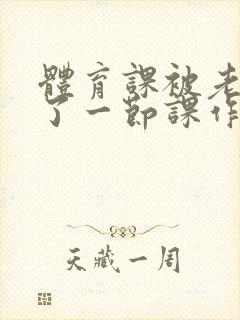 體育課被老
了一節課作
天藏一周